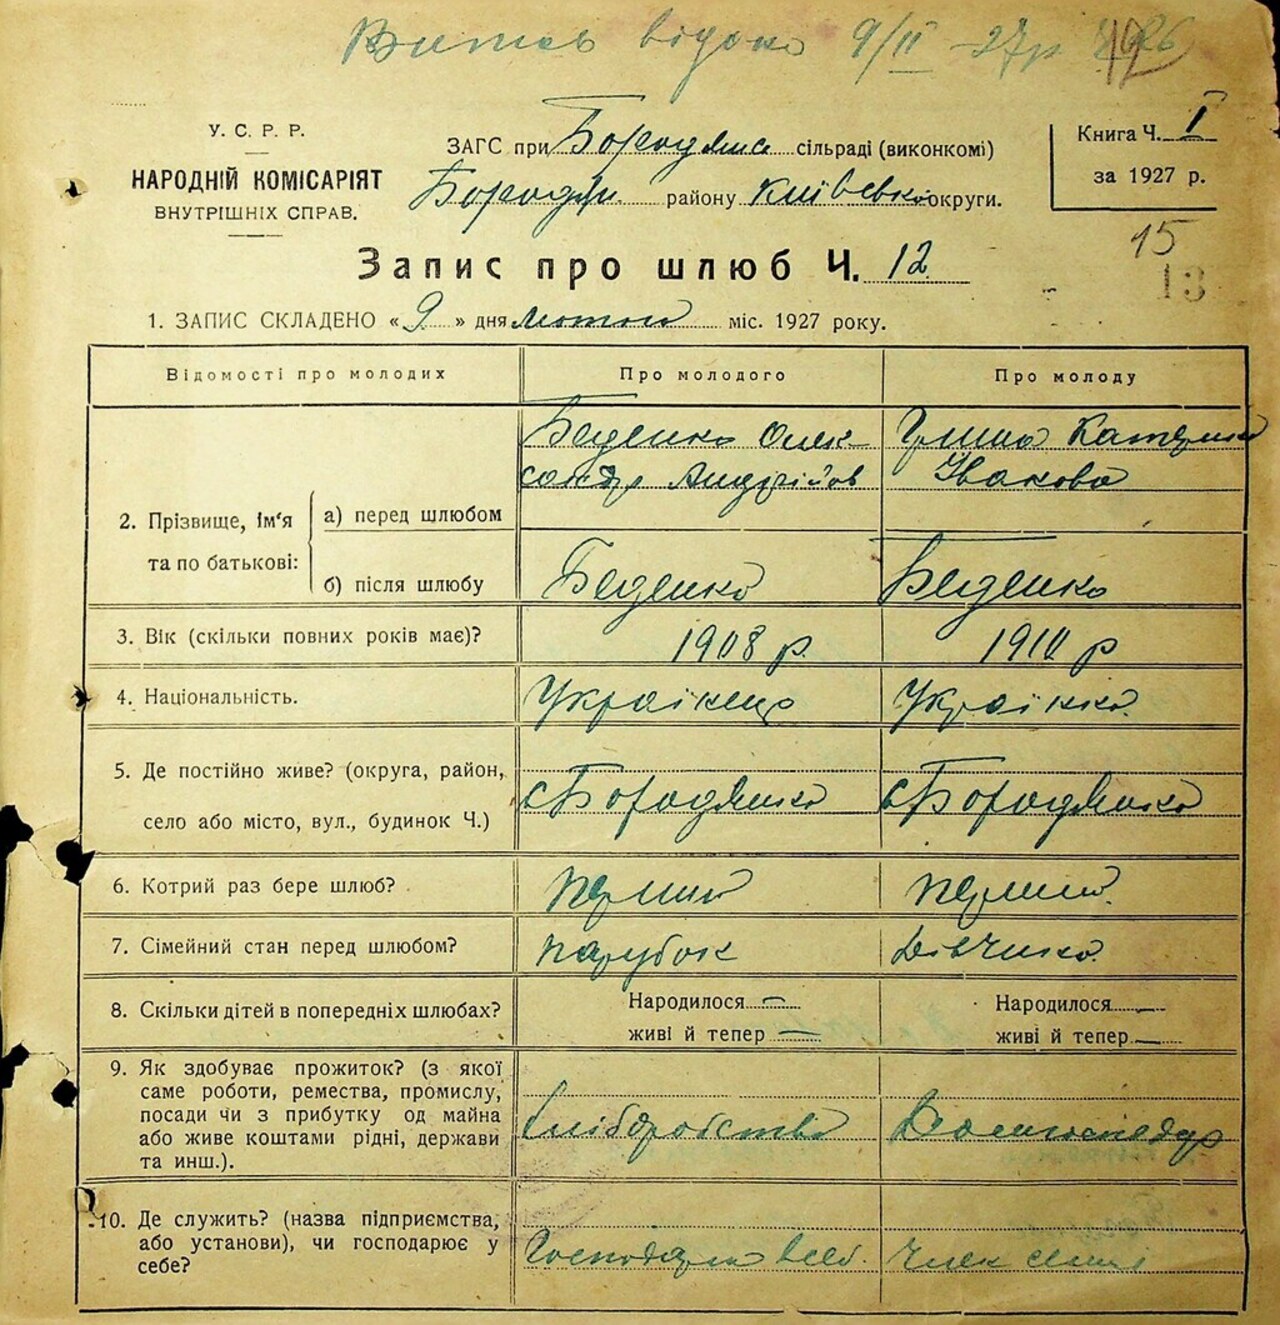 Витяг відано 9/II -27р
У. С. Р. Р.
НАРОДНІЙ КОМІСАРІЯТ
ВНУТРІШНІХ СПРАВ.
ЗАГС при Бородянс. сільраді (виконкомі)
Бородян. району Київсько округи.
Книга Ч. I
за 1927 р.
15
13
Запис про шлюб Ч. 12
1. ЗАПИС СКЛАДЕНО «9» дня лютого міс. 1927 року.
Відомості про молодих
Про молодого
Про молоду
2. Прізвище, ім'я та по батькові:
а) перед шлюбом
Беденко Олек
сандр Андрійов
Катерина
Іванова
б) після шлюбу
Беденко
Беденко
3. Вік (скільки повних років має)?
1908 р.
1910 р
4. Національність.
Українець
Українка.
5. Де постійно живе? (округа, район,
село або місто, вул., будинок Ч.)
с Бородянка
с Бородянка
6. Котрий раз бере шлюб?
перший
перший.
7. Сімейний стан перед шлюбом?
парубок
дівчина.
8. Скільки дітей в попередніх шлюбах?
Народилося —
живі й тепер —
Народилося —
живі й тепер —
9. Як здобуває прожиток? (з якої
саме роботи, ремества, промислу,
посади чи з прибутку од майна
або живе коштами рідні, держави
та инш.).
хліборобство
Домогосподар
10. Де служить? (назва підприємства,
або установи), чи господарює у
себе?
Господарю в себ.
Член семї